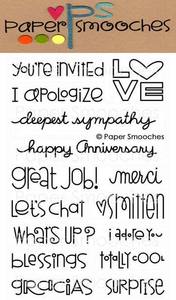 PS
PAPER SMOOCHES
you're invited
LOVE
I apologize
deepest sympathy
© Paper Smooches
happy Anniversary
great job!
merci
let's chat
smitten
what's up?
i adore you
blessings
totally cool
gracias
surprise